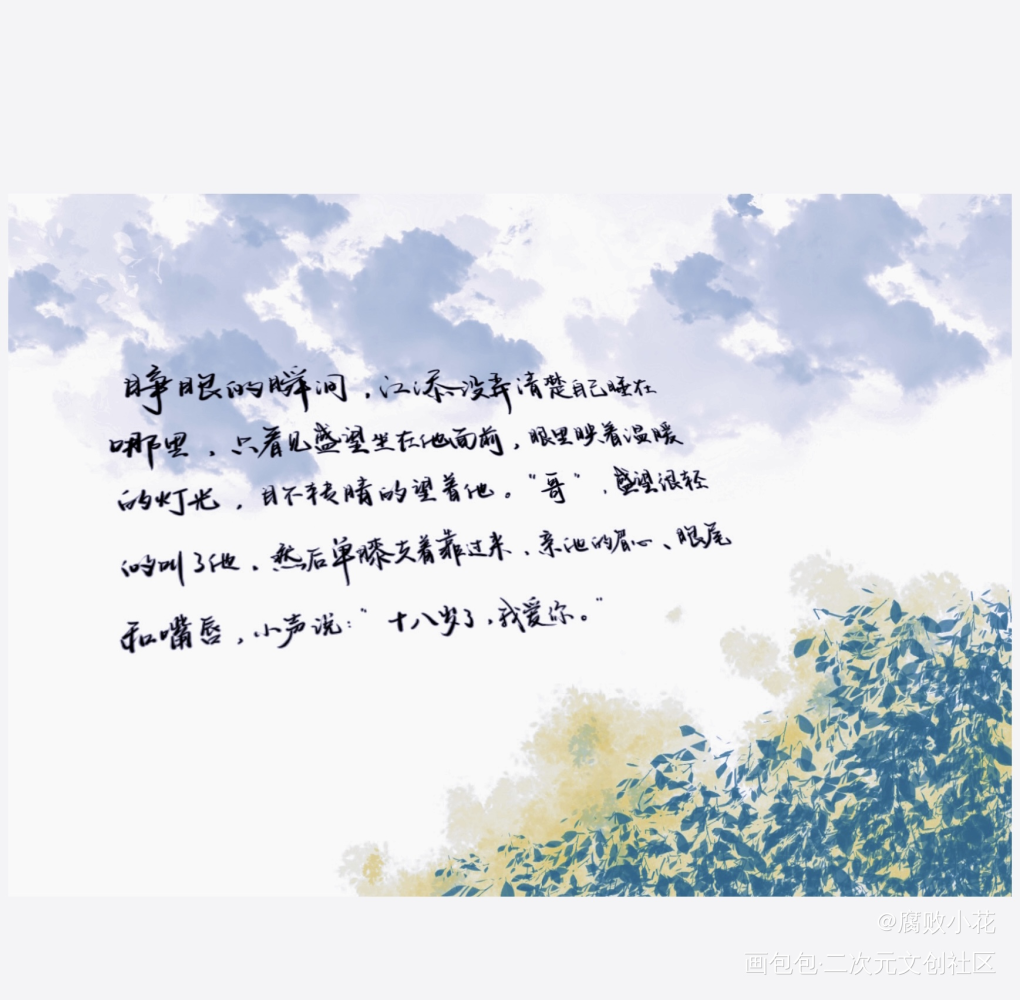 睁眼的瞬间，江添没弄清楚自己睡在
哪里，只看见盛望坐在他面前，眼里映着温暖
的灯光，目不转睛的望着他。“哥”，盛望很轻
的叫了他，然后单膝支着靠过来，亲他的眉心、眼尾
和嘴唇，小声说：“十八岁了，我爱你。”
@腐败小花
画包包·二次元文创社区